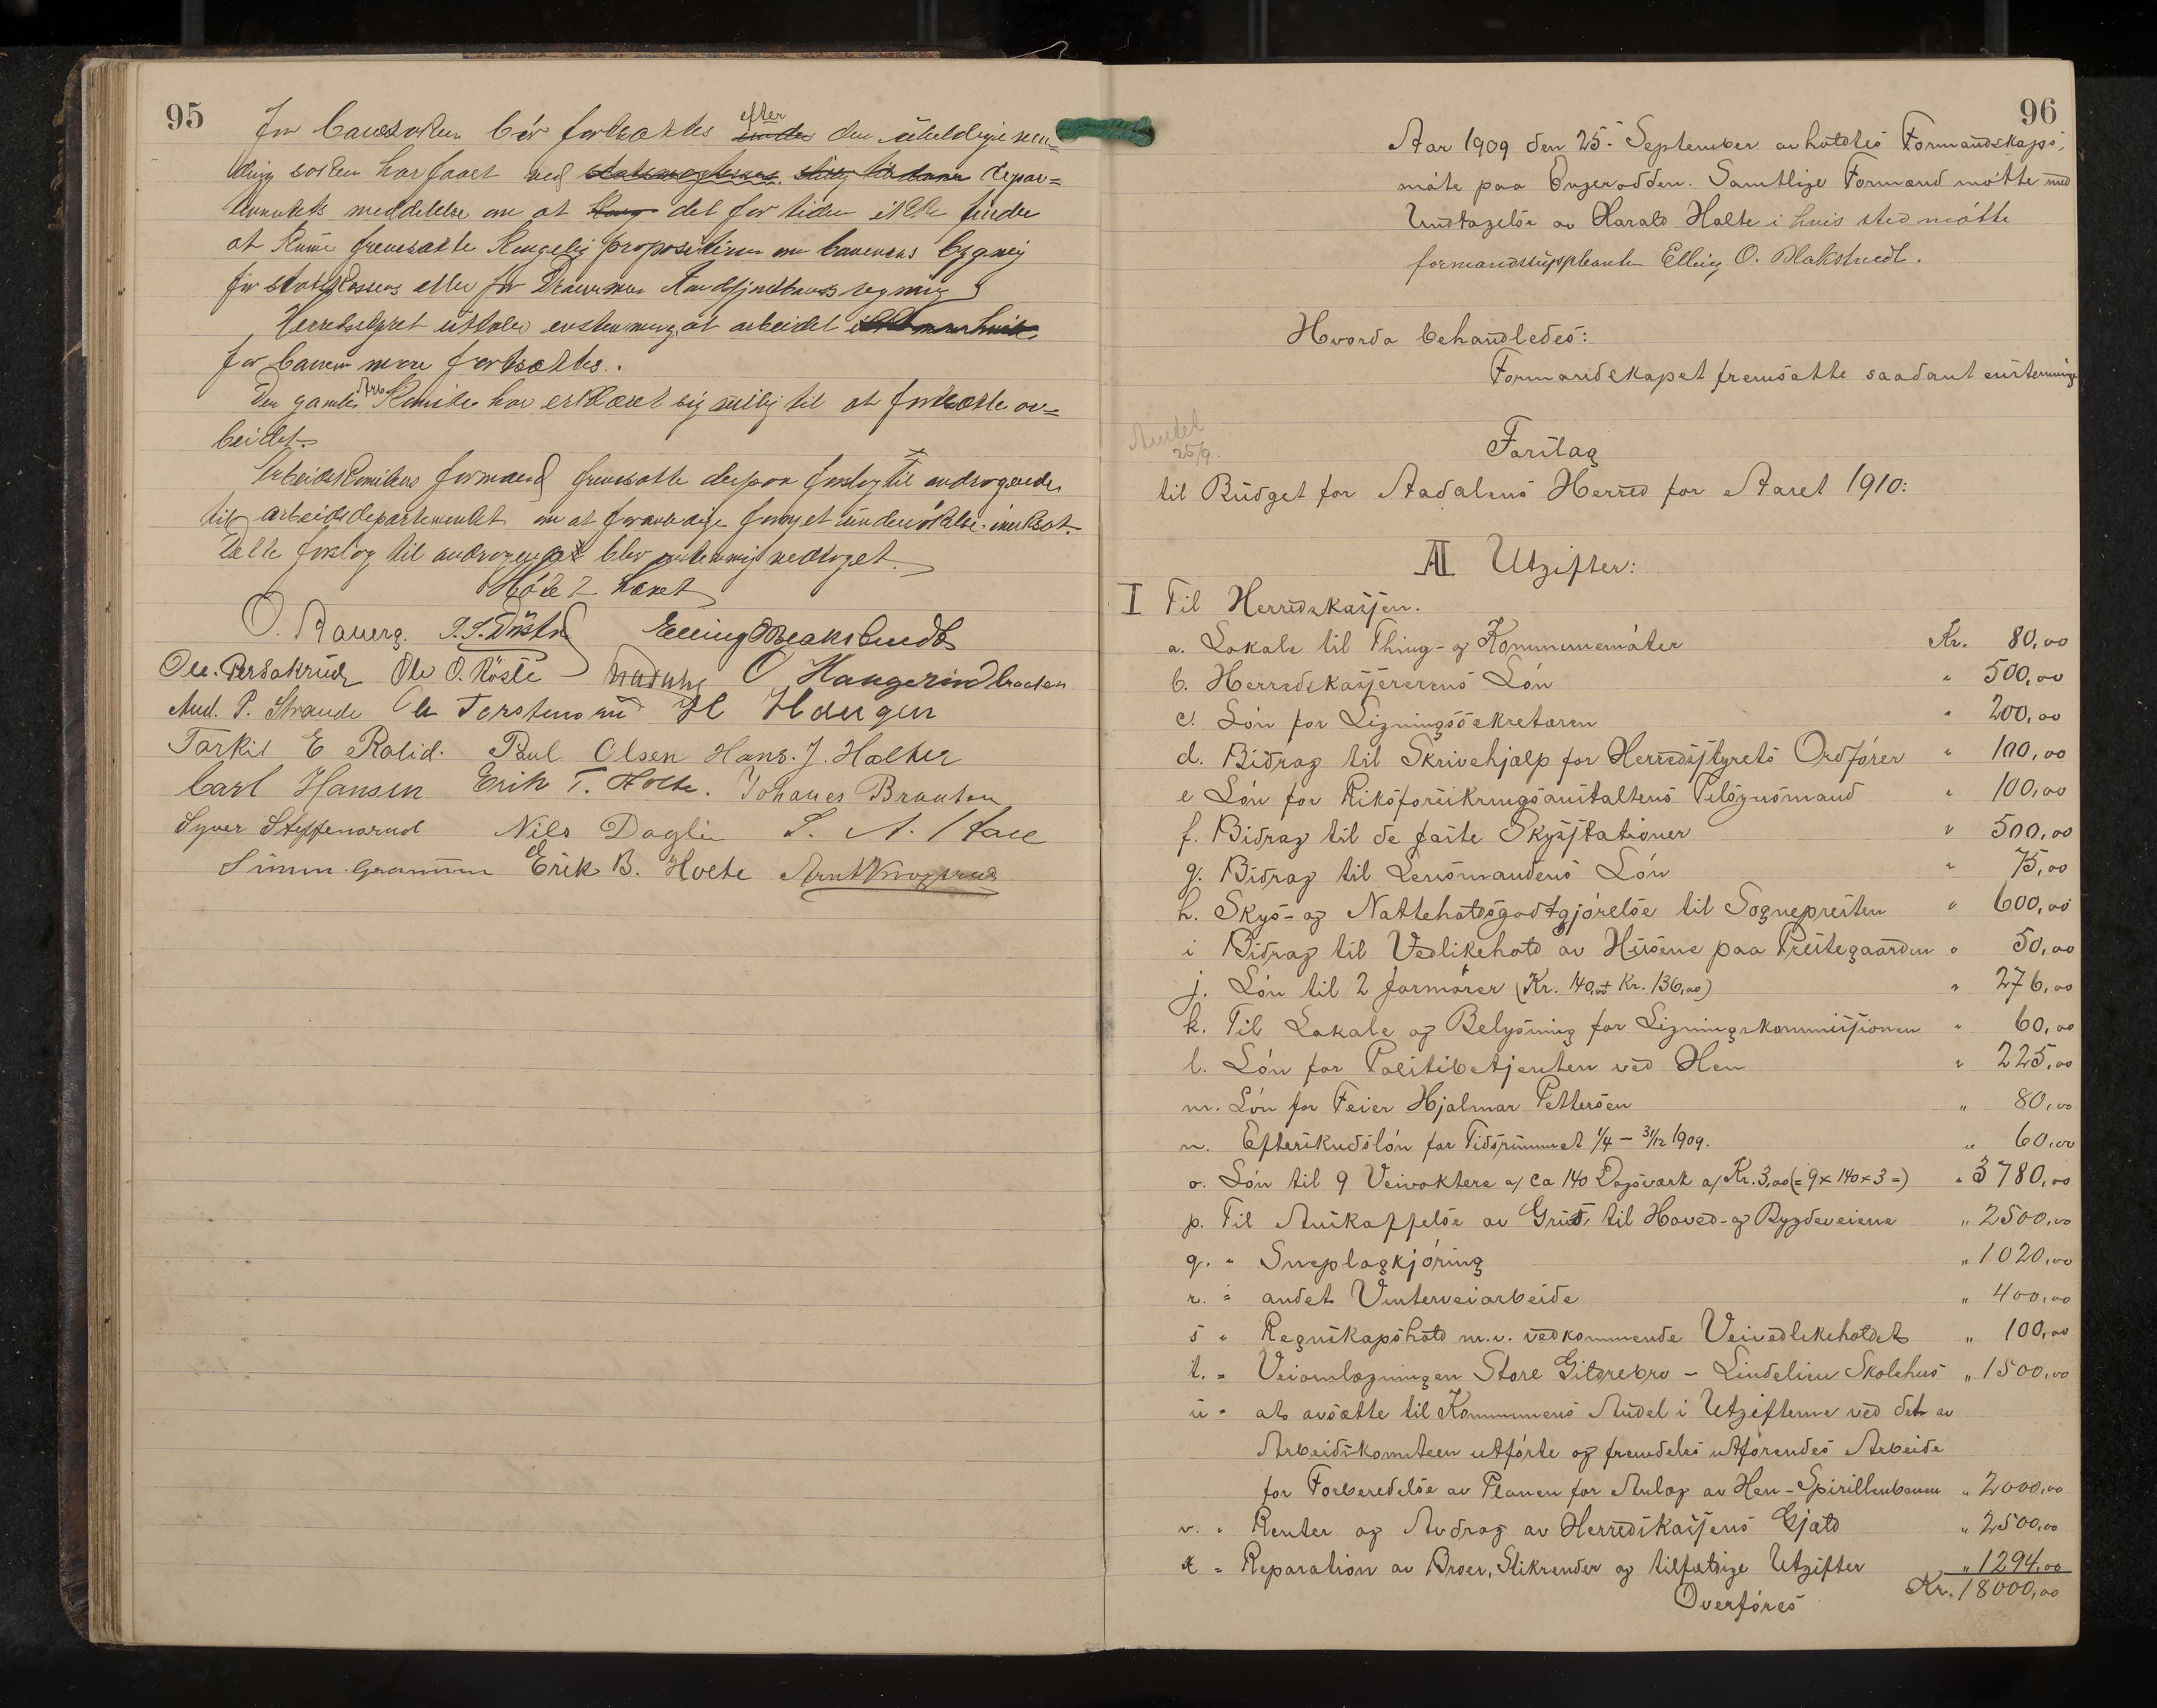 95
for banesaken bør fortsættes efter under den uheldige ven=
ding saken har faaet ved depar=
tementets meddelelse om at det for tiden ikke finder
at kunne fremsætte Kongelig proposition om banens bygning
for statskassens eller for Drammen Randsfjordbanes regning
Herredstyret uttaler enstemmig, at arbeidet
for banen maa fortsættes.
Den gamle Arb. Komite har erklæret sig villig til at fortsætte ar=
beidet.
Arbeidskomiteens formand fremsatte derpaa forslag til andragende
til arbeidsdepartementet om at foranledige fornyet undersøkelse iverksat.
Dette forslag til andragende blev enstemmig vedtaget.
Møtet hævet
O. Elling O Blakstvedt
Ole O. Røste O Haugerind
And. P. Strande Ole Torstensrud H Haugen
Torkil E Rolid. Paul Olsen Hans. J. Holter
Carl Hansen Erik T. Holte. Johanes Braaten
Syver Steffensrud Nils Dagli S. A.
Simen Erik B. Holte Arnt
96
Aar 1909 den 25. September avholdtes Formandskaps-
møte paa Engerodden. Samtlige Formænd møtte med
Undtagelse av Harald Holte i hvis sted møtte
formandssuppleanten Elling O. Blakstvedt.
Hvorda behandledes:
Formandskapet fremsatte saadant enstemmige
25/9.
Forslag
til Budget for Aadalens Herred for Aaret 1910:
A Utgifter:
I Til Herredskassen.
a. Lokale til Thing- og Kommunemøter Kr. 80,00
b. Herredskassererens Løn " 500,00
c. Løn for Ligningssekretæren " 200,00
d. Bidrag til Skrivehjælp for Herredsstyrets Ordfører " 100,00
e Løn for Riksforsikringsanstaltens Tilsynsmand " 100,00
f. Bidrag til de faste Skysstationer " 500,00
g. Bidrag til Lensmandens Løn " 75,00
h. Skys- og Natteholdsgodtgjørelse til Sognepresten " 600,00
i Bidrag til Vedlikehold av Husene paa Prestegaarden " 50,00
j. Løn til 2 Jormører (Kr. 140,00 + Kr. 136,00) " 276,00
k. Til Lokale og Belysning for Ligningskommissionen " 60,00
l. Løn for Politibetjenten ved Hen " 225,00
m. Løn for Feier Hjalmar Pettersen " 80,00
n. Efterskudsløn for Tidsrummet 1/4 — 31/12 1909. " 60,00
o. Løn til 9 Veivoktere a/ ca 140 Dagsværk a/ Kr. 3,00 (= 9 x 140 x 3 =) " 3780,00
p. Til Anskaffelse av Grus, til Hoved- og Bygdeveiene " 2500,00
q. " Sneplogkjøring " 1020,00
r. " andet Vinterveiarbeide " 400,00
s " Regnskapshold m.v. vedkommende Veivedlikeholdet " 100,00
t. " Veiomlægningen Store Gildrebro – Lindelien Skolehus " 1500,00
u " at avsætte til Kommunens Andel i Utgifterne ved det av
Arbeidskomiteen utførte og fremdeles utførendes Arbeide
for Forberedelse av Planen for Anlæg av Hen-Spirillenbanen " 2000,00
v. " Renter og Avdrag av Herredskassens Gjæld " 2500,00
x " Reparation av Broer, Stikrender og tilfældige Utgifter " 1294,00
Overføres Kr. 18000,00